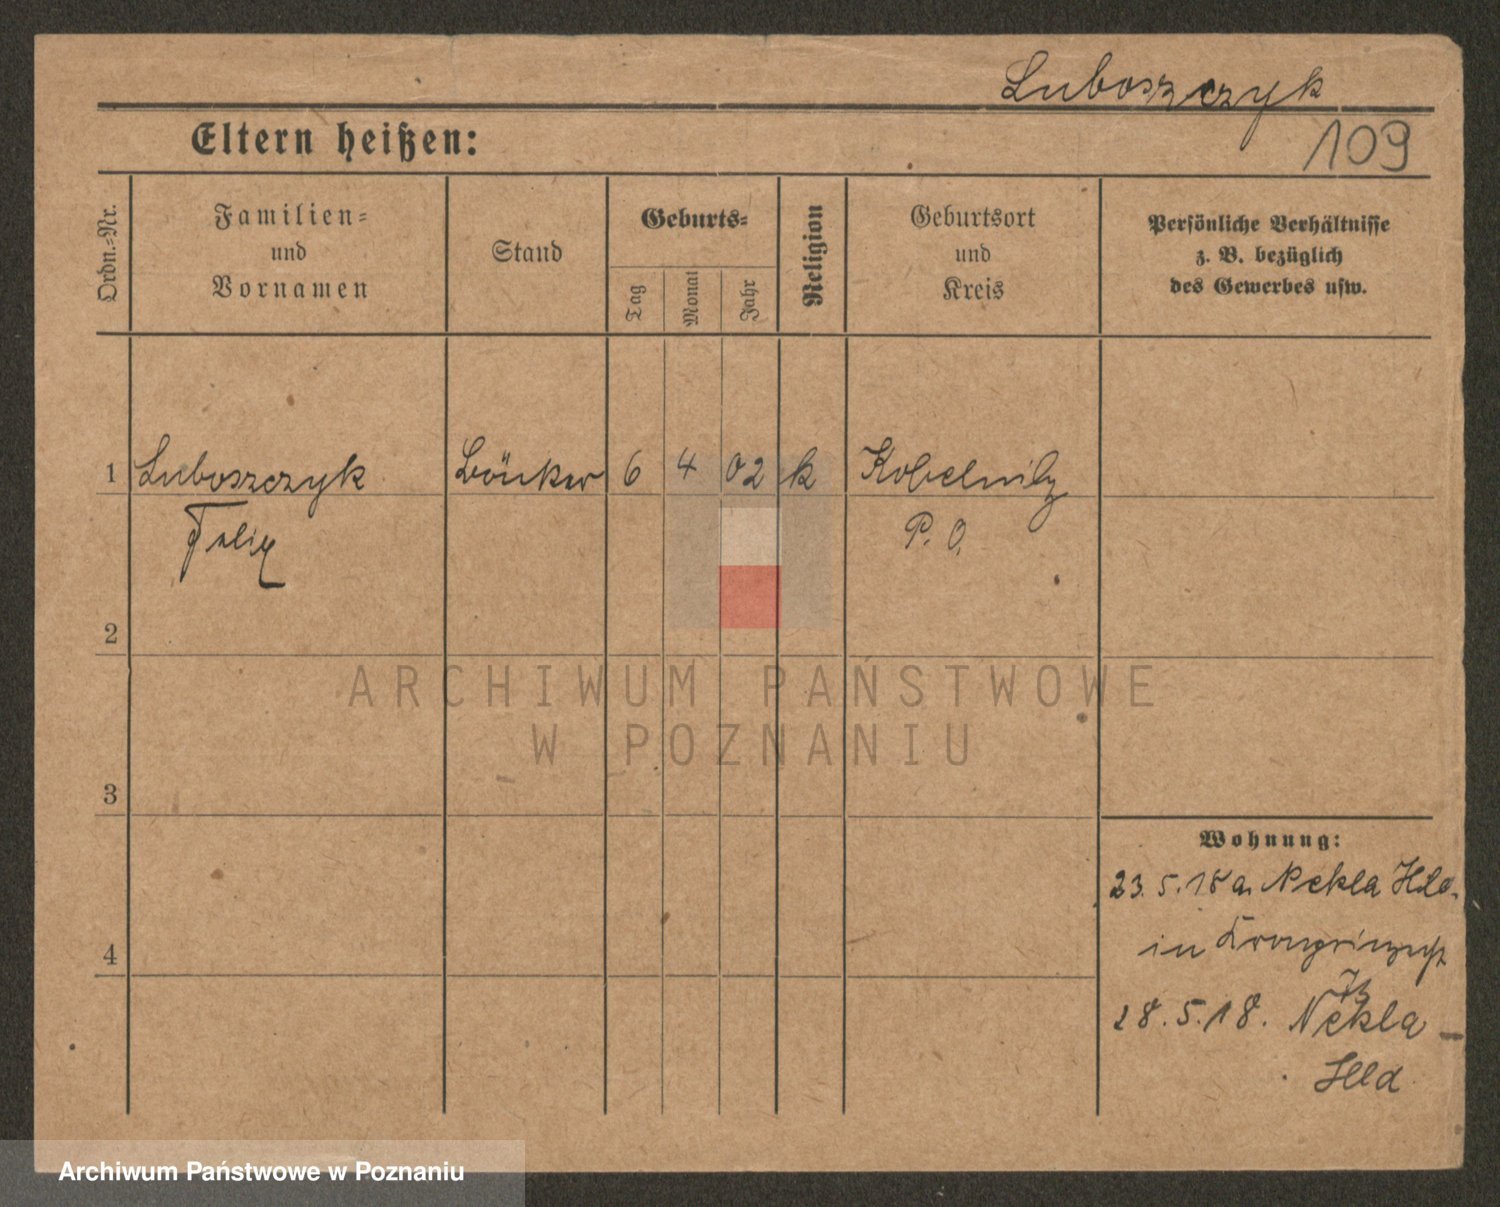 Luboszczyk
Eltern heißen:
109
Ordn.-Nr.
Familien-
und
Vornamen
Stand
Geburts-
Tag
Monat
Jahr
Religion
Geburtsort
und
Kreis
Persönliche Verhältnisse
z. B. bezüglich
des Gewerbes usw.
1 Luboszczyk Böttker 6 4 02 k Kobelnitz
Felix P. O.
2
3
4
Wohnung:
23. 5. 18 a. Nekla Hld.
in
28. 5. 18. Nekla
Hld
ARCHIWUM PAŃSTWOWE
W POZNANIU
Archiwum Państwowe w Poznaniu